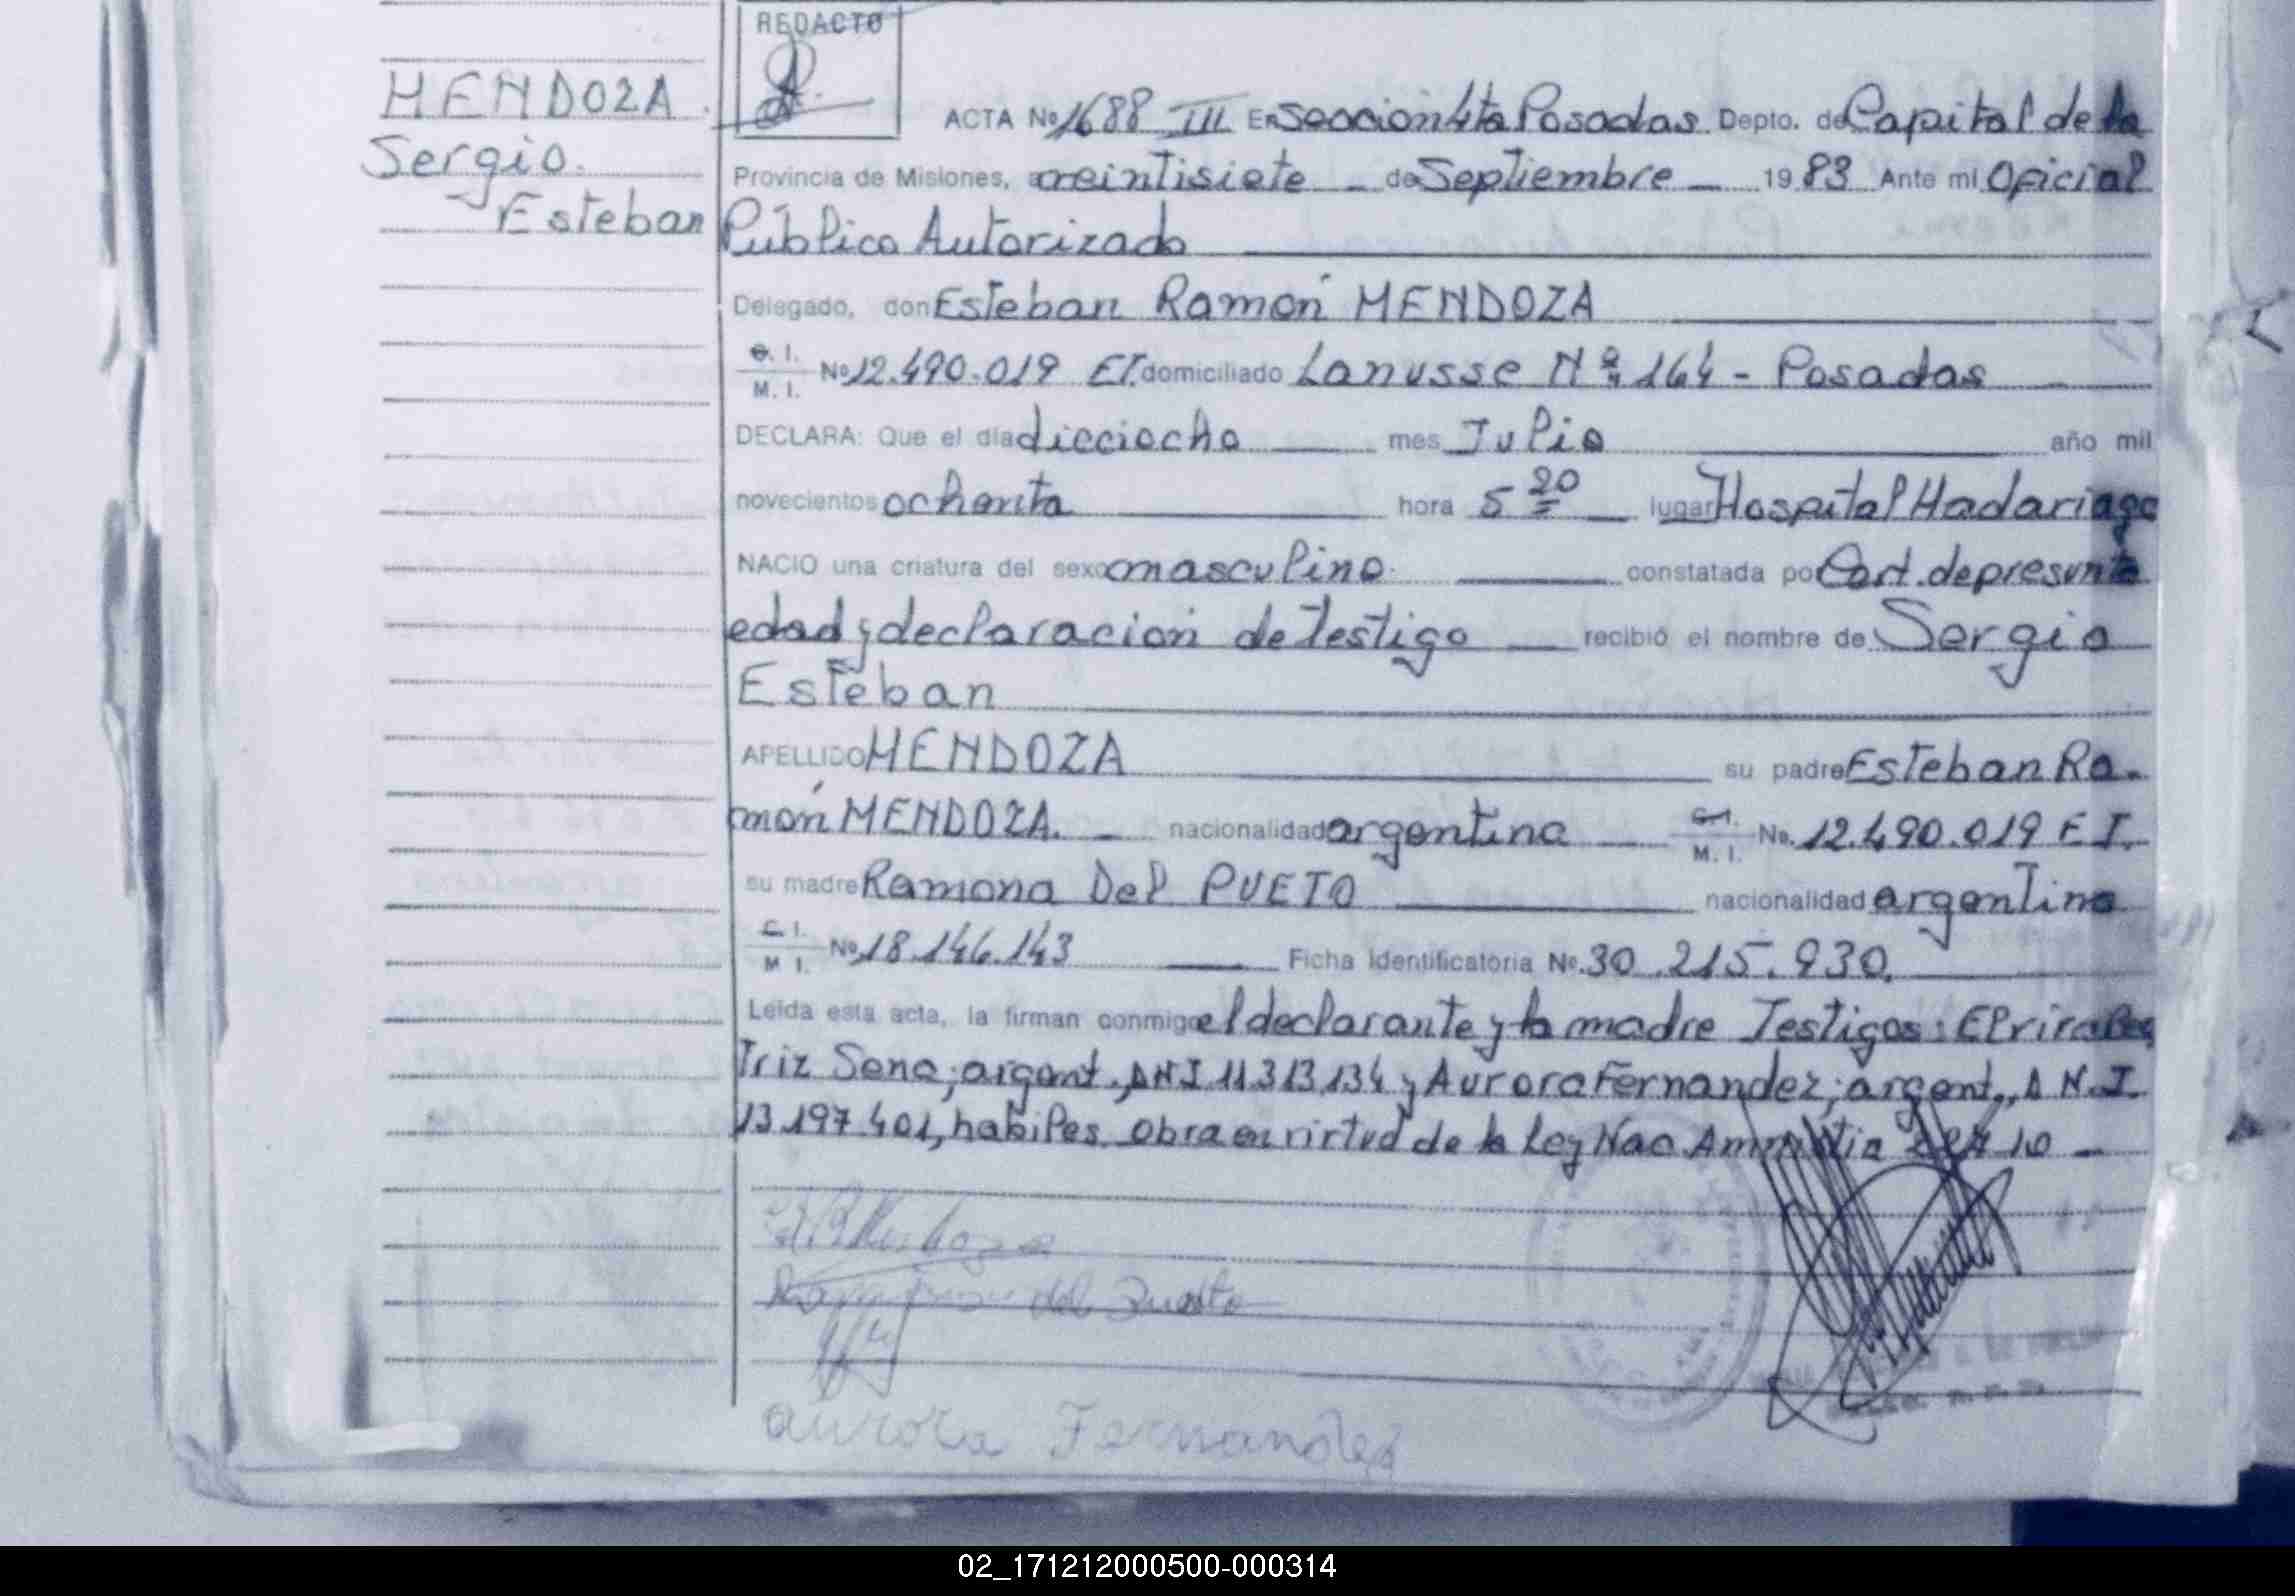 REDACTO
MENDOZA
Sergio
Esteban
ACTA Nº 1688 III En Seccion 4ta Posadas Depto. de Capital de la
Provincia de Misiones, a veintisiete de Septiembre 1983 Ante mi Oficial
Público Autorizado
Delegado, don Esteban Ramón MENDOZA
C. I. M. I. Nº 12.490.019 EI. domiciliado Lanusse Nº 164 - Posadas
DECLARA: Que el día dieciocho mes Julio año mil
novecientos ochenta hora 5 20 lugar Hospital Madariaga
NACIO una criatura del sexo masculino constatada por Cert. de presunta
edad y declaracion de Testigo recibió el nombre de Sergio
Esteban
APELLIDO MENDOZA su padre Esteban Ra-
món MENDOZA. nacionalidad argentina C.I. M. I. Nº. 12.490.019 E I.
su madre Ramona Del PUETO nacionalidad argentina
C. I. M I. Nº 18.146.143 Ficha Identificatoria Nº. 30.215.930.
Leída esta acta, la firman conmigo el declarante y la madre Testigos: Elvira Bea
Triz Sena; argent., DNI 11313.134 y Aurora Fernandez; argent., D.N.I.
13.197.401, habiles. Obra en virtud de la Ley Nac. Amnistia
Ramona del Puesto
Aurora Fernandez
02_171212000500-000314